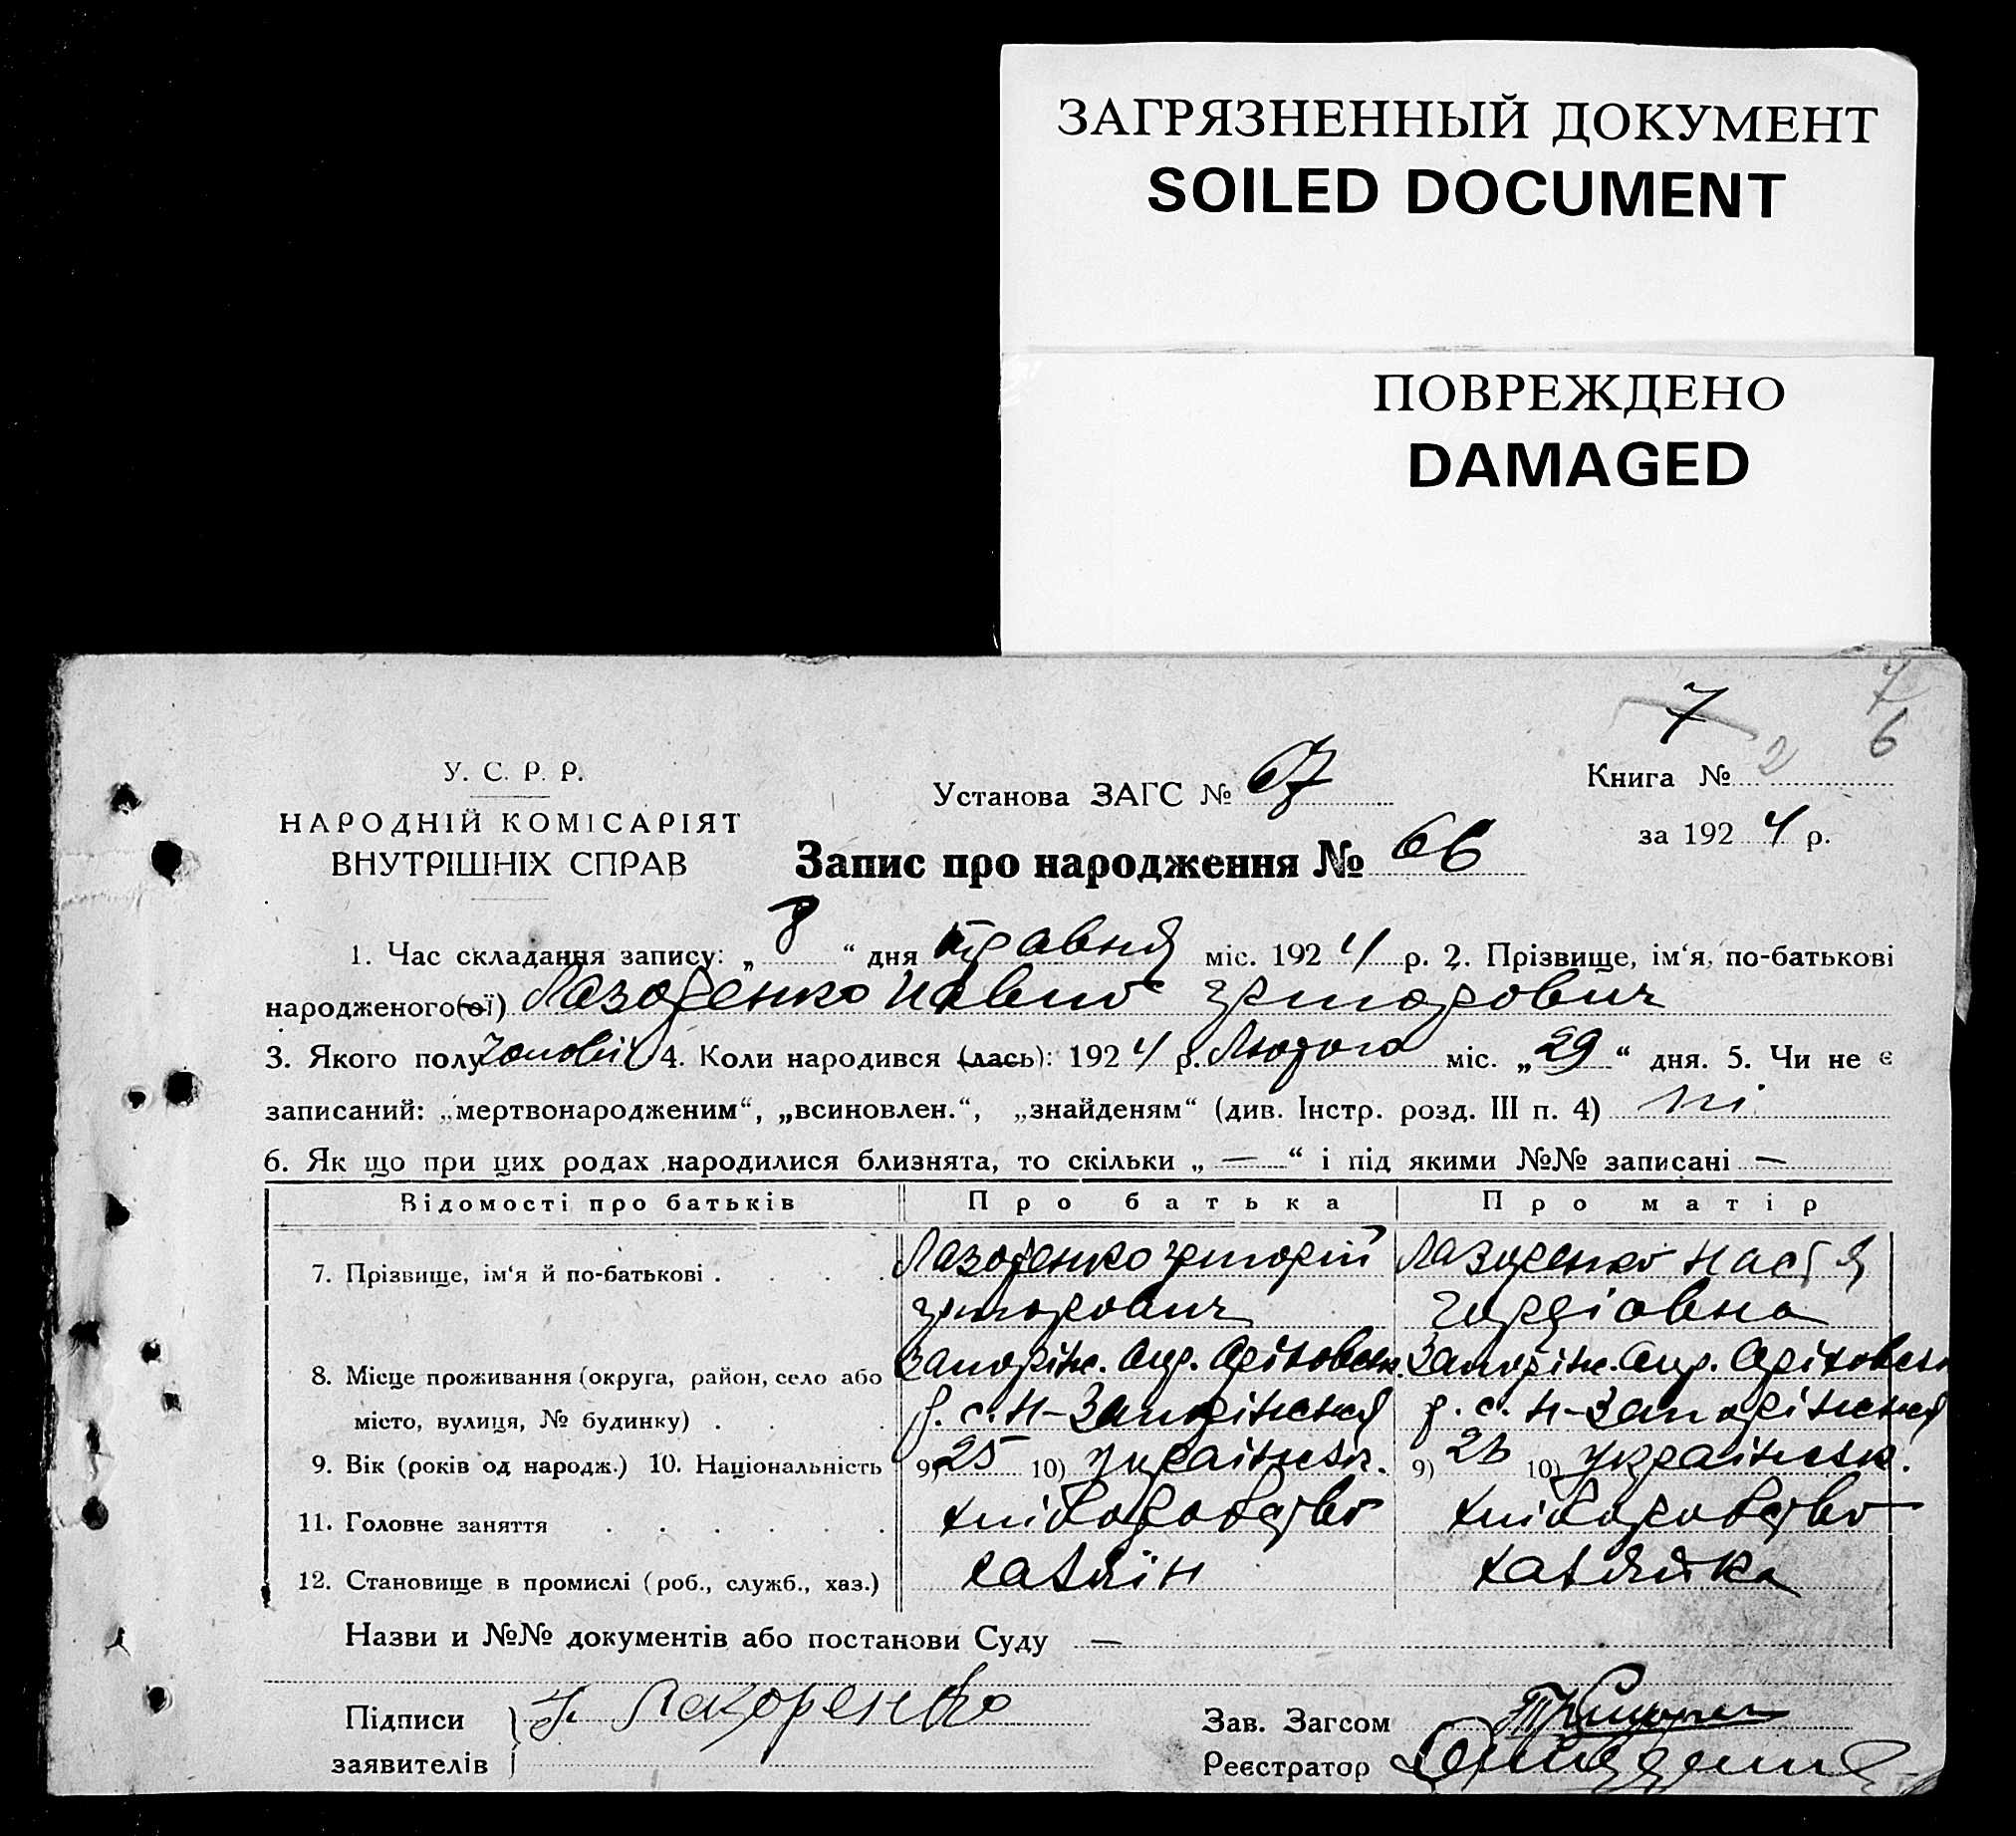 ЗАГРЯЗНЕННЫЙ ДОКУМЕНТ
SOILED DOCUMENT
ПОВРЕЖДЕНО
DAMAGED
7
7
6
У. С. Р. Р.
НАРОДНІЙ КОМІСАРІЯТ
ВНУТРІШНІХ СПРАВ
Установа ЗАГС № 67
Книга № 2
за 1924 р.
Запис про народження № 66
1. Час складання запису: „ 8 “ дня травня міс. 1924 р. 2. Прізвище, ім‘я, по-батькові
народженого(ої) Лазоренко Павло Григорович
3. Якого полу чоловіч 4. Коли народився (лась): 1924 р. Лютого міс. „ 29 “ дня. 5. Чи не є
записаний: „мертвонародженим“, „всиновлен.“, „знайденям“ (див. Інстр. розд. III п. 4) ні
6. Як що при цих родах народилися близнята, то скільки „ — “ і під якими №№ записані —
Відомості про батьків Про батька Про матір
7. Прізвище, ім‘я й по-батькові . . . . Лазоренко Григорій Лазоренко Настя
Григорович Гордіовна
8. Місце проживання (округа, район, село або Запоріж. Окр. Оріховськ. Запоріж. Окр. Оріховськ
місто, вулиця, № будинку) . . р. с. Н-Запоріжжя р. с. Н-Запоріжжя
9. Вік (років од народж.) 10. Національність 9) 25 10) Українськ. 9) 10) Українськ.
11. Головне заняття . . . . . . хліборобство хліборобство
12. Становище в промислі (роб., служб., хаз.) хазяїн хазяйка
Назви и №№ документів або постанови Суду —
Підписи Лазоренко Зав. Загсом
заявителів Реєстратор